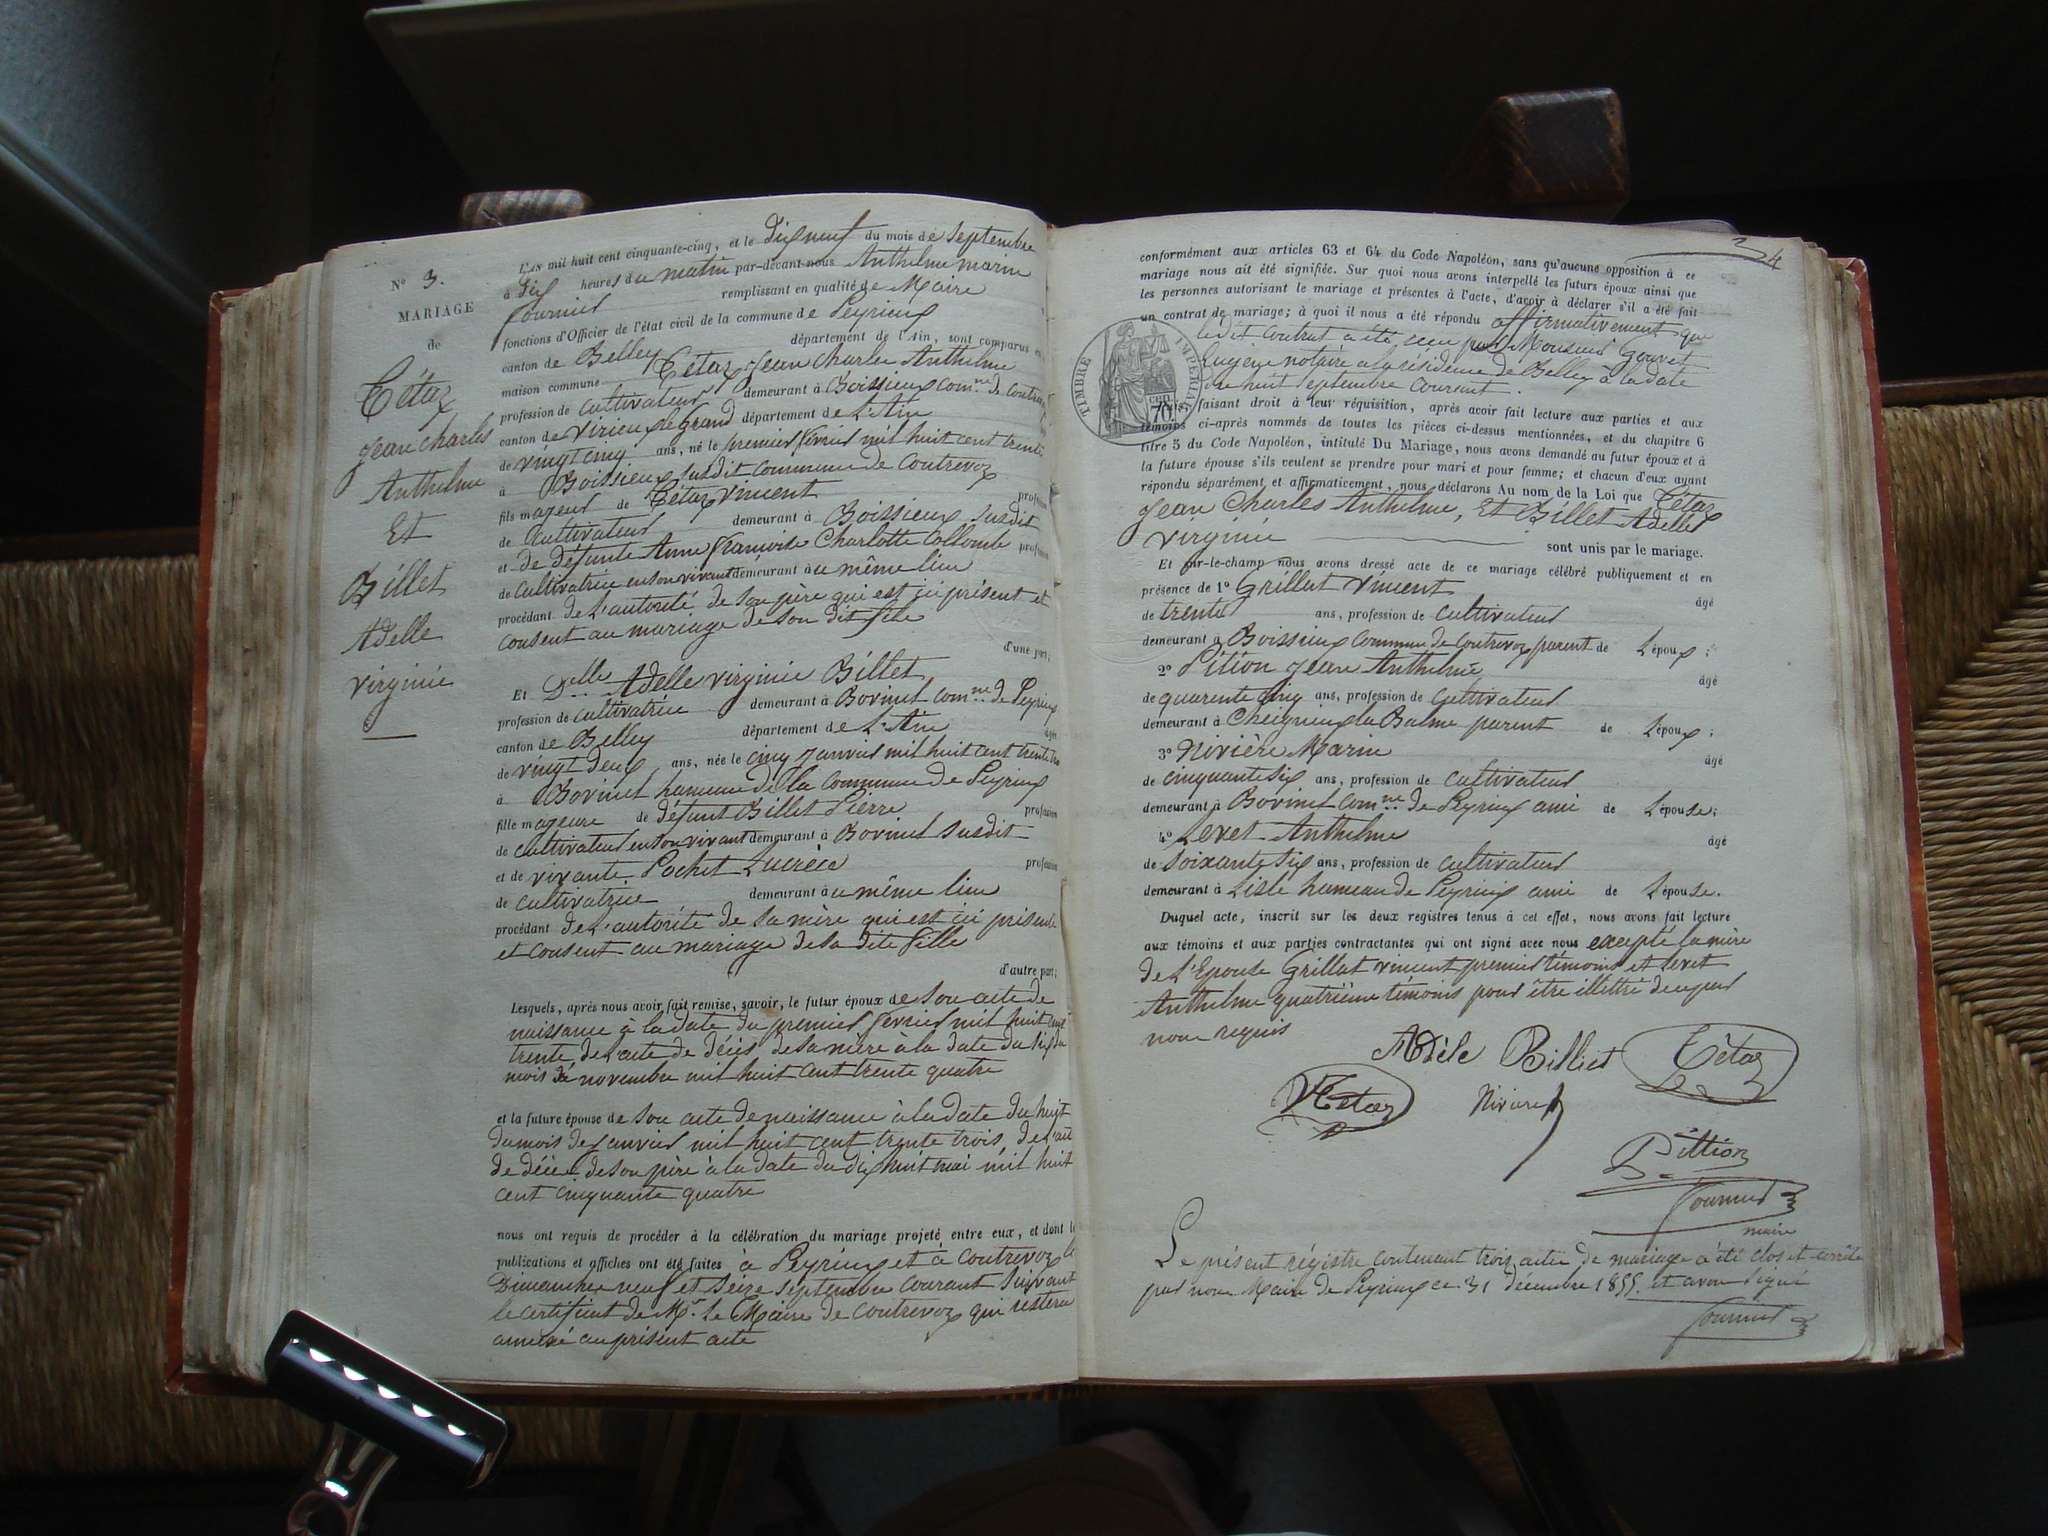 N° 3.
MARIAGE
de
Tétaz
Jean Charles
Anthelme
Et
Billet
Adelle
virginie
L'AN mil huit cent cinquante-cinq, et le Dix neuf du mois de septembre
à Dix heures du matin par-devant nous Anthelme marin
fournier remplissant en qualité de Maire
fonctions d'Officier de l'état civil de la commune de Peyrieux
canton de Belley département de l'Ain, sont comparus en
maison commune Tétaz Jean Charles Anthelme
profession de cultivateur demeurant à Boissieux comne de Contrevoz
canton de virieux le Grand département de L'Ain
de vingt cinq ans, né le premier février mil huit cent trente
à Boissieux susdit commune de Contrevoz
fils majeur de Tétaz vincent profession
de cultivateur demeurant à Boissieux susdit
et de défunte Anne françoise Charlotte Collomb profession
de cultivatrice en son vivant demeurant à u même lieu
procédant de L'autorité de son père qui est ici présent et
consent au mariage de son dit fils
d'une part;
Et Delle Adelle virginie Billet
profession de cultivatrice demeurant à Bovinel comne de Peyrieux
canton de Belley département de L'Ain âgée
de vingt deux ans, née le cinq janvier mil huit cent trente trois
à Bovinel hameau de la commune de Peyrieux
fille majeure de défunt Billet Pierre profession
de cultivateur en son vivant demeurant à Bovinel susdit
et de vivante Pochet Lucrèce profession
de cultivatrice demeurant à u même lieu
procédant de L'autorité de sa mère qui est ici présente
et consent au mariage de sa dite fille
d'autre part;
Lesquels, après nous avoir fait remise, savoir, le futur époux de son acte de
naissance à la date du premier février mil huit cent
trente, de l'acte de décès de sa mère a la date du six du
mois de novembre mil huit cent trente quatre
et la future épouse de son acte de naissance à la date du huit
du mois de janvier mil huit cent trente trois, de l'acte
de décès de son père à la date du dix huit mai mil huit
cent cinquante quatre
nous ont requis de procéder à la célébration du mariage projeté entre eux, et dont les
publications et affiches ont été faites à Peyrieux et à Contrevoz le
Dimanches neuf et seize septembre courant suivant
le certificat de Mr. le Maire de Contrevoz qui restera
annexé au présent acte
4
conformément aux articles 63 et 64 du Code Napoléon, sans qu'aucune opposition à ce
mariage nous ait été signifiée. Sur quoi nous avons interpellé les futurs époux ainsi que
les personnes autorisant le mariage et présentes à l'acte, d'avoir à déclarer s'il a été fait
un contrat de mariage; à quoi il nous a été répondu affirmativement que
ledit contrat a été recu par Monsieur Gouvet
Eugene notaire a la résidence de Belley à la date
du huit septembre courant.
TIMBRE IMPÉRIAL
70c
faisant droit à leur réquisition, après avoir fait lecture aux parties et aux
témoins ci-après nommés de toutes les pièces ci-dessus mentionnées, et du chapitre 6
titre 5 du Code Napoléon, intitulé Du Mariage, nous avons demandé au futur époux et à
la future épouse s'ils veulent se prendre pour mari et pour femme; et chacun d'eux ayant
répondu séparément et affirmaticement, nous déclarons Au nom de la Loi que Tétaz
Jean Charles Anthelme, Et Billet Adelle
virginie sont unis par le mariage.
Et sur-le-champ nous avons dressé acte de ce mariage célébré publiquement et en
présence de 1° Grillat vincent âgé
de trente ans, profession de cultivateur
demeurant à Boissieux commune de Contrevoz parent de L'époux;
2° Pition Jean Anthelme âgé
de quarente cinq ans, profession de cultivateur
demeurant à Cheignieu la Balme parent de L'époux;
3° Nivière Marin âgé
de cinquante six ans, profession de cultivateur
demeurant à Bovinel comne de Peyrieux ami de L'épouse;
4° Levet Anthelme âgé
de soixante six ans, profession de cultivateur
demeurant à Lisle hameau de Peyrieux ami de L'épouse.
Duquel acte, inscrit sur les deux registres tenus à cet effet, nous avons fait lecture
aux témoins et aux parties contractantes qui ont signé avec nous excepté la mère
de L'Epouse Grillat vincent premier témoins et Levet
Anthelme quatrième témoins pour être illettré de ce par
nous requis
Adèle Billiet Tétaz
Tétaz Nivière
Pittion
fournier
maire
Le présent régistre contenant trois actes de mariage a été clos et arrêté
par nous Maire de Peyrieux ce 31 décembre 1855. et avons signé
fournier